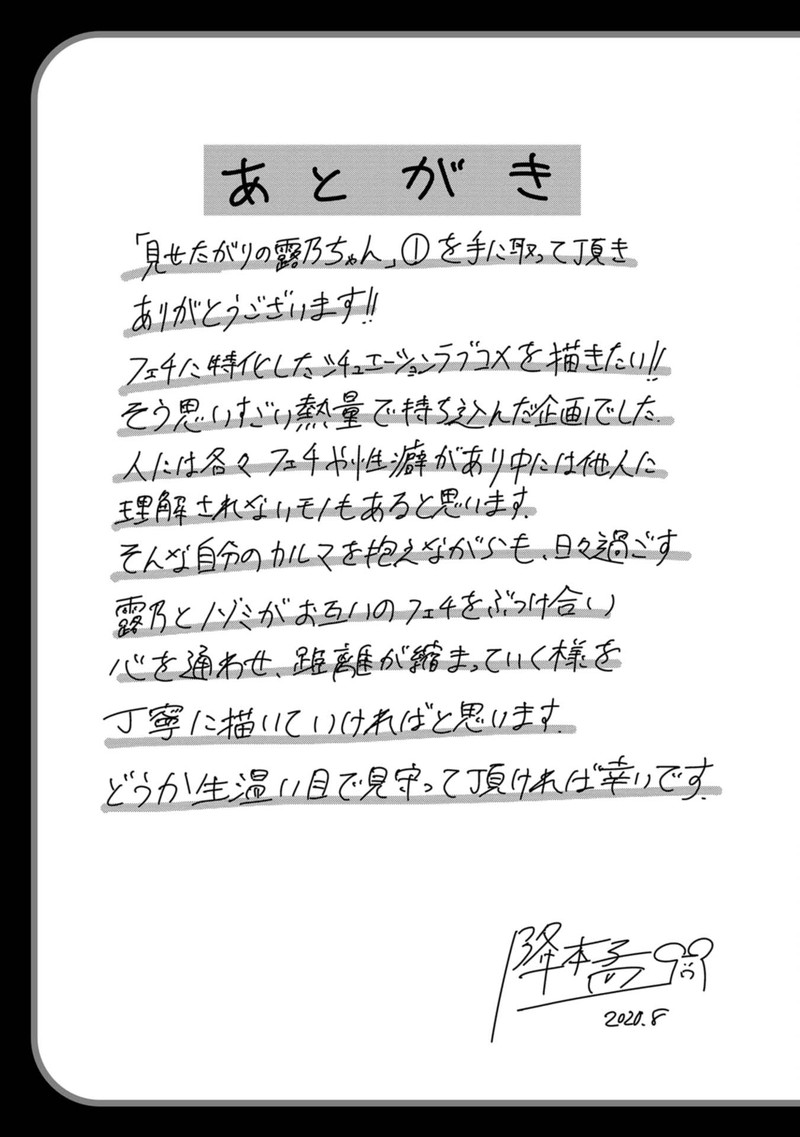 あとがき
「見せたがりの露乃ちゃん」①を手に取って頂き
ありがとうございます!!
フェチに特化したシチュエーションラブコメを描きたい!!
そう思いすごい熱量で持ち込んだ企画でした.
人には各々フェチや性癖があり中には他人に
理解されないモノもあると思います.
そんな自分のカルマを抱えながらも、日々過ごす
露乃とノゾミがお互いのフェチをぶつけ合い
心を通わせ、距離が縮まっていく様を
丁寧に描いていければと思います.
どうか生温い目で見守って頂ければ幸いです.
2020.8